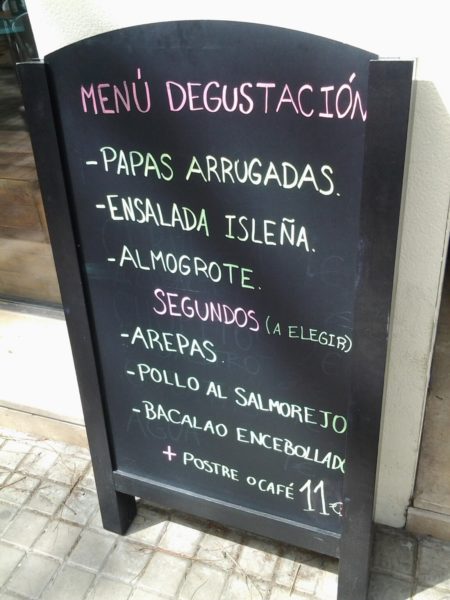 MENÚ DEGUSTACIÓN
-PAPAS ARRUGADAS.
-ENSALADA ISLEÑA.
-ALMOGROTE.
SEGUNDOS (A ELEGIR)
-AREPAS.
-POLLO AL SALMOREJO
-BACALAO ENCEBOLLADO
+ POSTRE O CAFÉ 11€